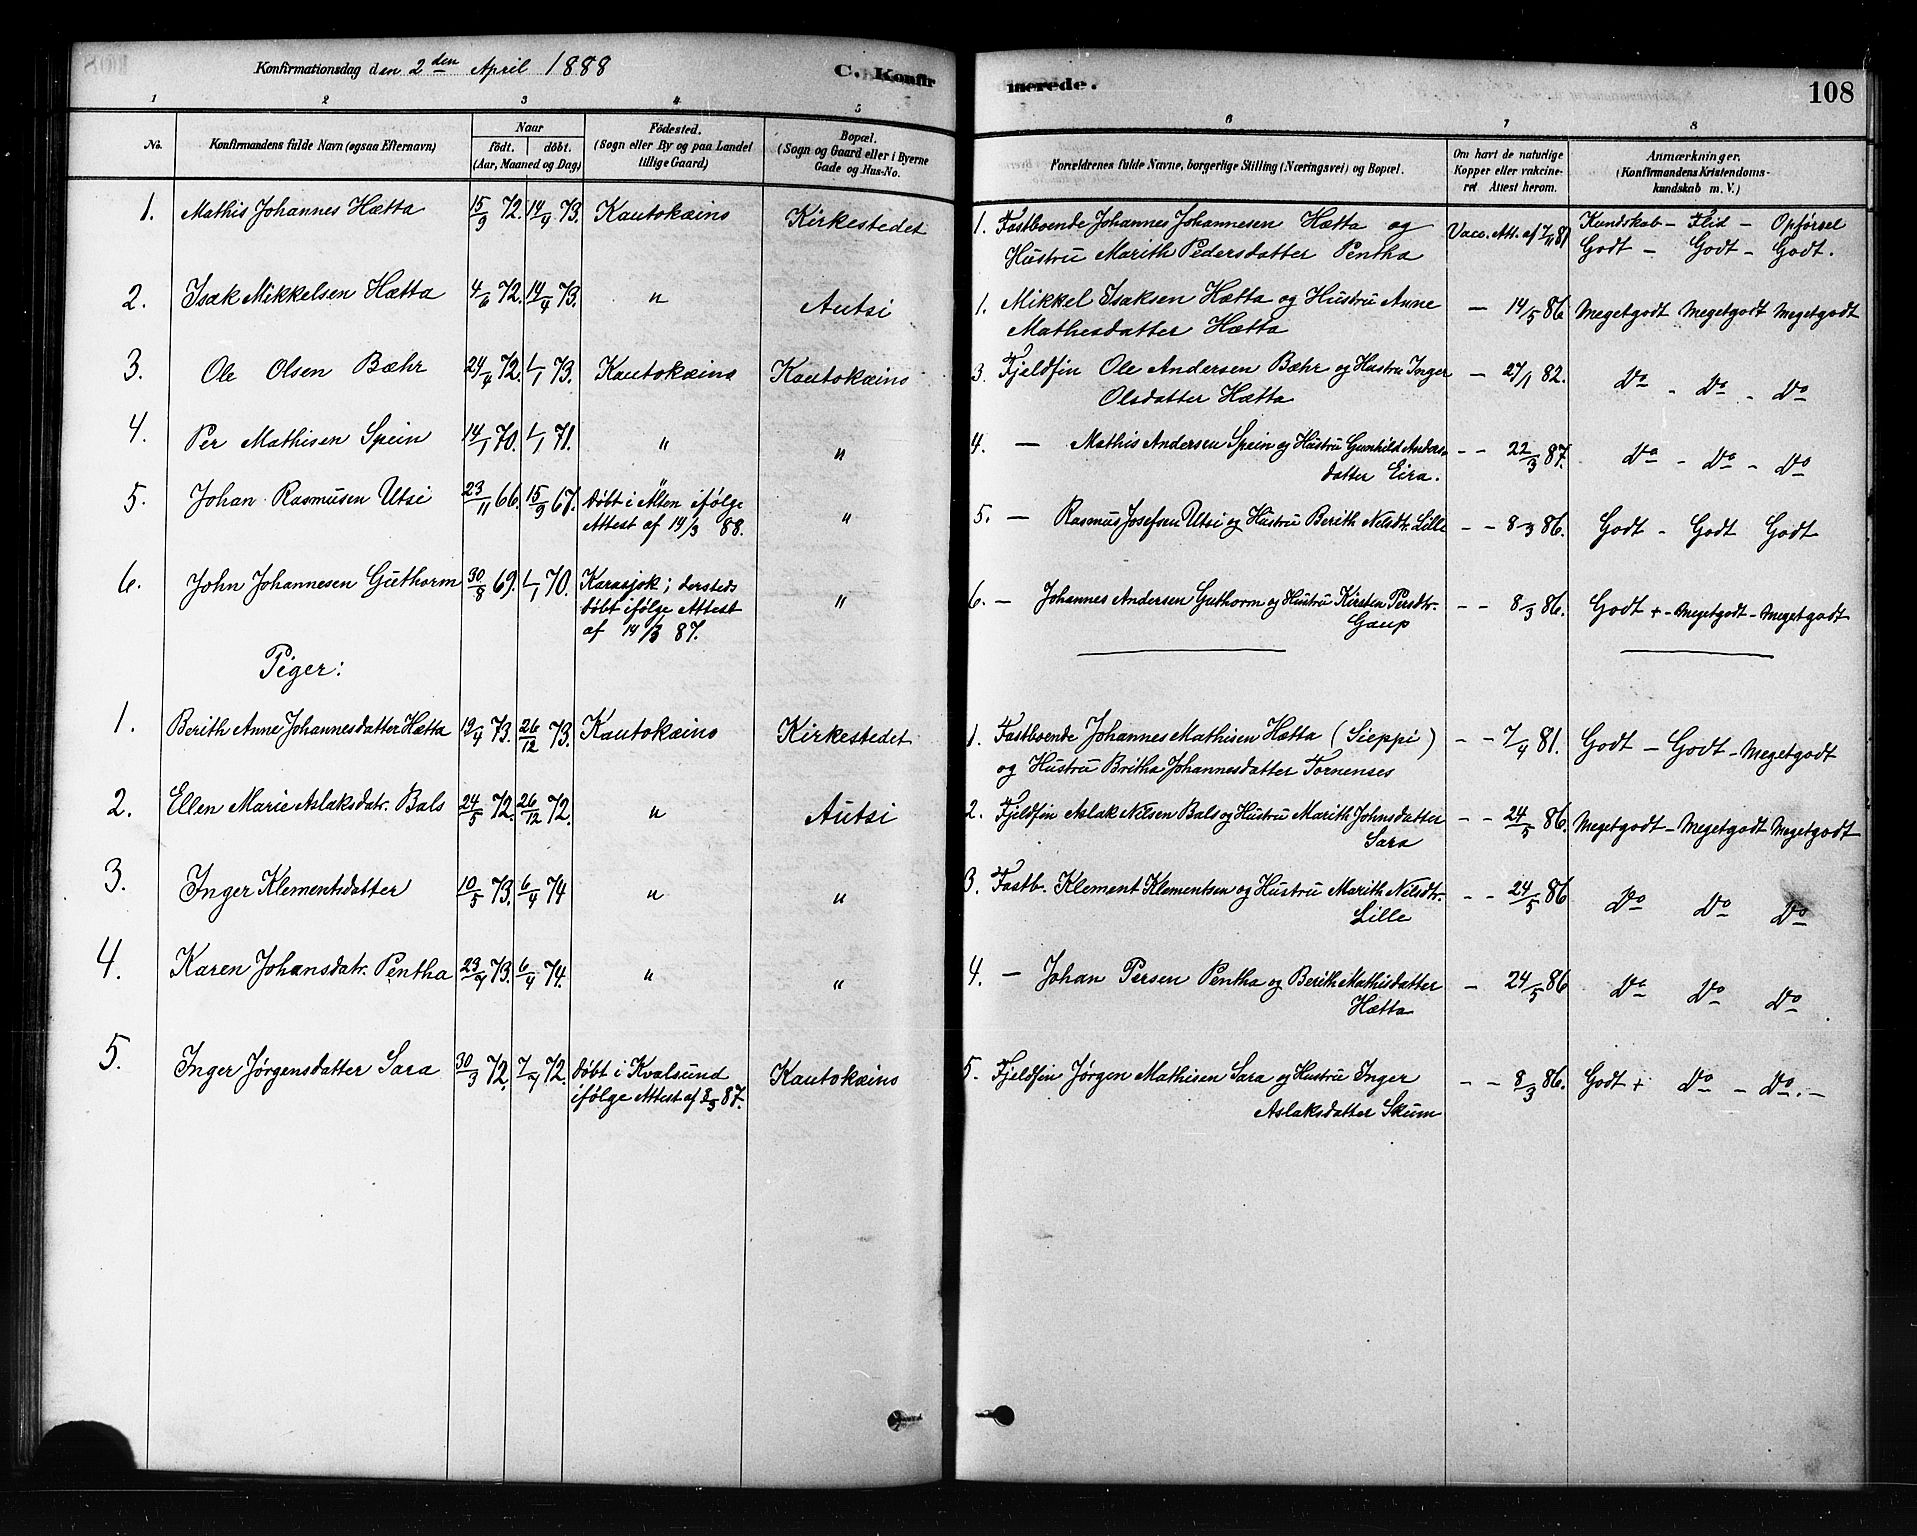 Konfirmationsdag den 2den April 1888
C. Konfirmerede.
108
1 2 3 4 5 6 7 8
No.
Konfirmandens fulde Navn (ogsaa Efternavn)
Naar
født. døbt.
(Aar, Maaned og Dag)
Fødested.
(Sogn eller By og paa Landet
tillige Gaard)
Bopæl.
(Sogn og Gaard eller i Byerne
Gade og Hus-No.
Forældrenes fulde Navne, borgerlige Stilling (Næringsvei) og Bopæl.
Om havt de naturlige
Kopper eller vakcine-
ret Attest herom.
Anmærkninger.
(Konfirmandens Kristendoms-
kundskab m. V.)
1. Mathis Johannes Hætta 15/9 72. 14/4 73. Kautokæino Kirkestedet
1. Fastboende Johannes Johannesen Hætta og Vacc. Att. af 7/11 81 Kundskab - Flid - Opførsel
Hustru Marith Pedersdatter Pentha Godt - Godt - Godt.
2. Isak Mikkelsen Hætta 4/6 72. 14/4 73. " Autsi
1. Mikkel Isaksen Hætta og Hustru Anne - 14/5 86. Megetgodt Megetgodt Megetgodt
Mathesdatter Hætta
3. Ole Olsen Bæhr 24/4 72. 1/1 73. Kautokæino Kautokæino
3. Fjeldfin Ole Andersen Bæhr og Hustru Inger - 27/1 82. Do - Do - Do
Olsdatter Hætta
4. Per Mathisen Spein 14/1 70. 1/1 71. " "
4. - Mathis Andersen Spein og Hustru Gunhild Anders- - - 22/3 87. Do - Do - Do
datter Eira.
5. Johan Rasmusen Utsi 23/11 66. 15/9 67. " "
døbt i Alten ifølge
Attest af 14/3 88.
5. - Rasmus Josefsen Utsi og Hustru Berith Nelsdtr. Lille - - 8/3 86. Godt - Godt Godt
6. John Johannesen Guthorm 30/8 69. 1/1 70. Karasjok; dersteds "
døbt ifølge Attest
af 14/3 87.
6. - Johannes Andersen Guthorm og Hustru Kirsten Persdtr. - - 8/3 86. Godt + - Megetgodt - Megetgodt
Gaup
Piger:
1. Berith Anne Johannesdatter Hætta 12/4 73. 26/12 73. Kautokæino Kirkestedet
1. Fastboende Johannes Mathisen Hætta (Sieppi) - - 7/4 81. Godt - Godt - Megetgodt
og Hustru Britha Johannesdatter Tornenses
2. Ellen Marie Aslaksdatr. Bals 24/5 72. 26/12 72. " Autsi
2. Fjeldfin Aslak Nilsen Bals og Hustru Marith Johnsdatter - - 24/5 86. Megetgodt - Megetgodt Megetgodt
Sara
3. Inger Klementsdatter 10/5 73. 6/4 74 " "
3. Fastb. Klement Klementsen og Hustru Marith Nilsdtr. - - 24/5 86 Do Do Do
Lille
4. Karen Johansdatr. Pentha 23/7 73. 6/4 74. " "
4. - Johan Persen Pentha og Berith Mathisdatter - 24/5 86 Do Do Do
Hætta
5. Inger Jørgensdatter Sara 30/3 72. 7/7 72. døbt i Kvalsund Kautokæino
ifølge Attest af 2/3 87.
5. Fjeldfin Jørgen Mathisen Sara og Hustru Inger - - 8/3 86. Godt + Do - Do. -
Aslaksdatter Skum